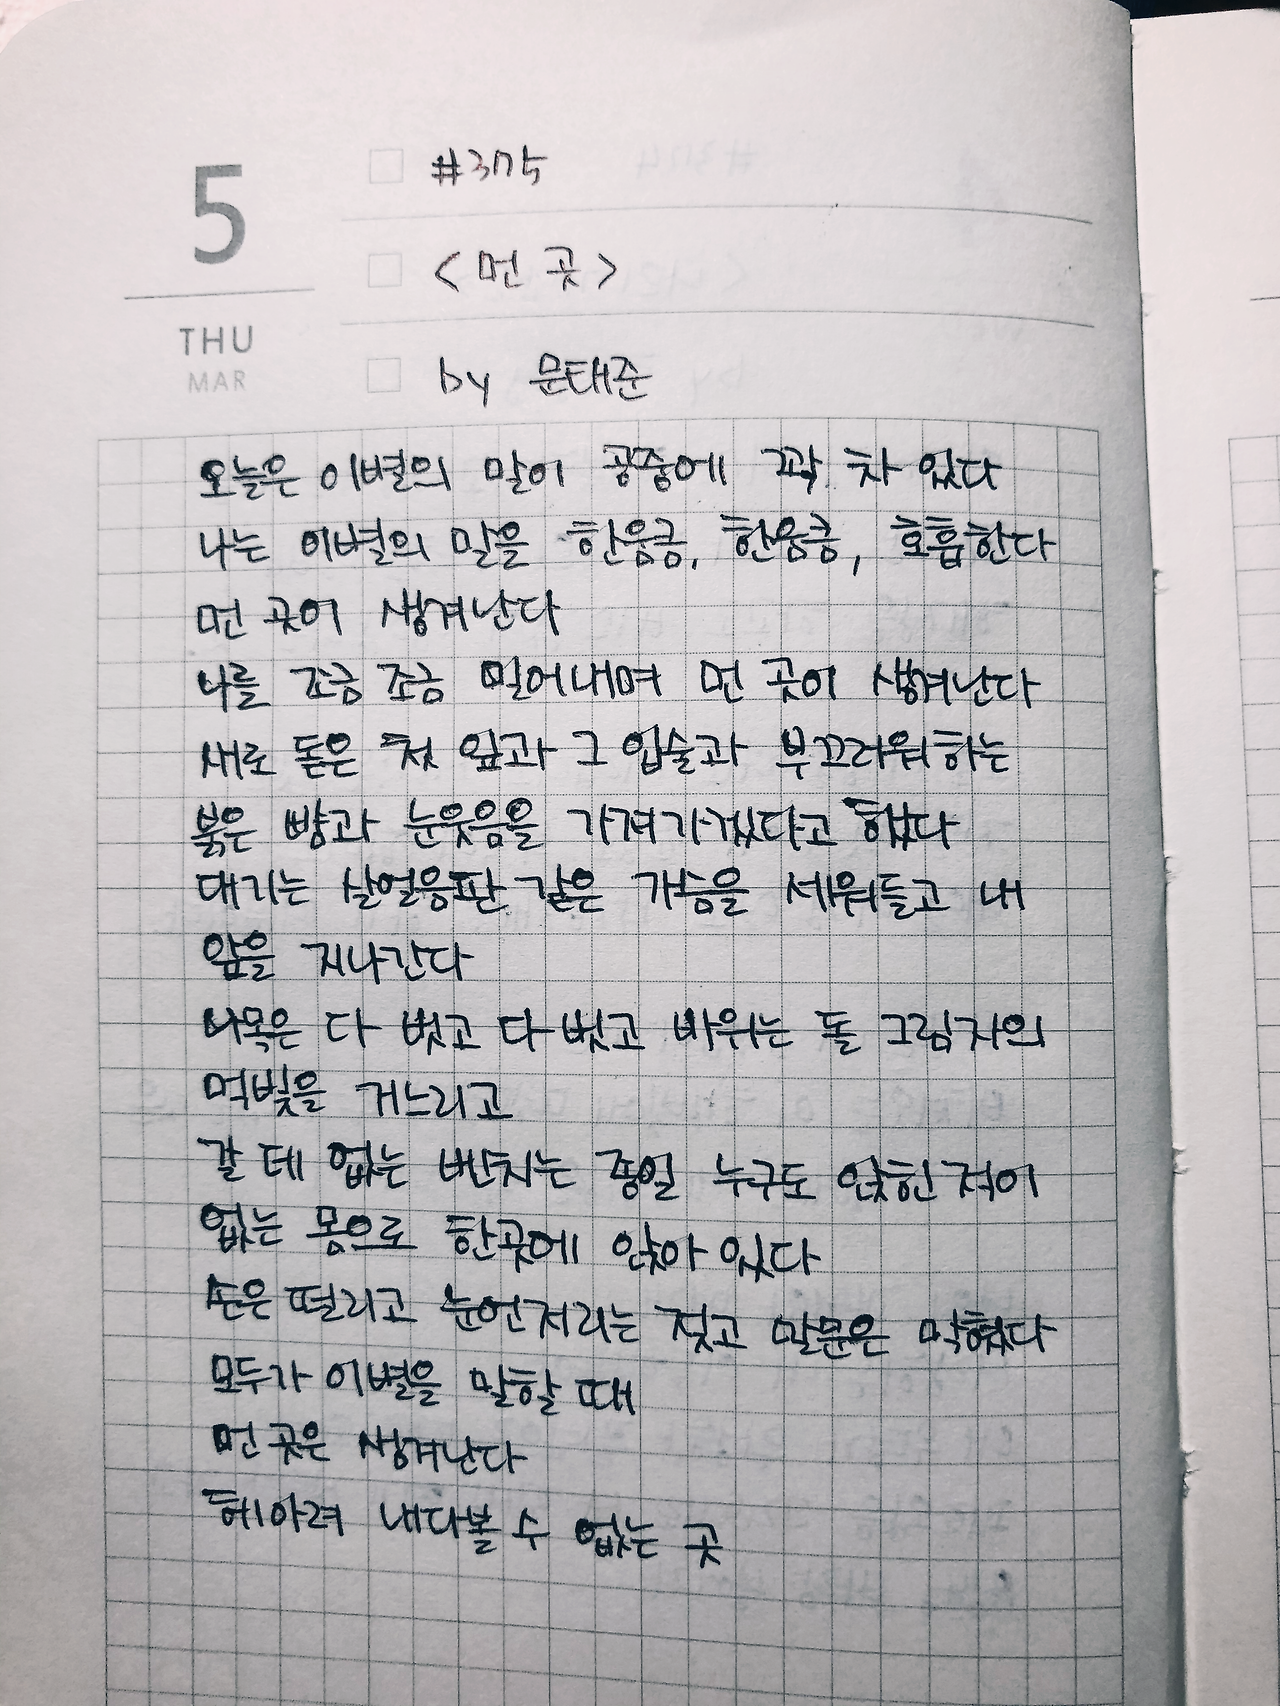 5
THU
MAR
#375
<먼 곳>
by 문태준
오늘은 이별의 말이 공중에 꽉 차 있다
나는 이별의 말을 한움큼, 한움큼, 호흡한다
먼 곳이 생겨난다
나를 조금 조금 밀어내며 먼 곳이 생겨난다
새로 돋은 첫 잎과 그 입술과 부끄러워하는
붉은 뺨과 눈웃음을 가져가겠다고 했다
대기는 살얼음판 같은 가슴을 세워들고 내
앞을 지나간다
나목은 다 벗고 다 벗고 바위는 돌 그림자의
먹빛을 거느리고
갈 데 없는 벤치는 종일 누구도 앉힌 적이
없는 몸으로 한곳에 앉아 있다
손은 떨리고 눈언저리는 젖고 말문은 막혔다
모두가 이별을 말할 때
먼 곳은 생겨난다
헤아려 내다볼 수 없는 곳